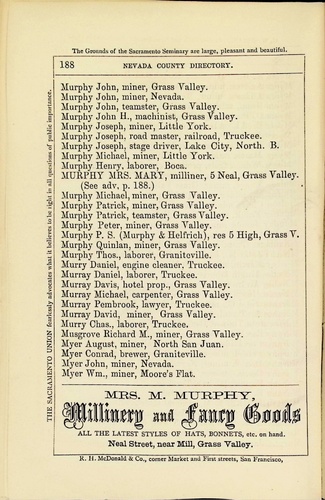 The Grounds of the Sacramento Seminary are large, pleasant and beautiful.
188 NEVADA COUNTY DIRECTORY.
Murphy John, miner, Grass Valley.
Murphy John, miner, Nevada.
Murphy John, teamster, Grass Valley.
Murphy John H., machinist, Grass Valley.
Murphy Joseph, miner, Little York.
Murphy Joseph, road master, railroad, Truckee.
Murphy Joseph, stage driver, Lake City, North. B.
Murphy Michael, miner, Little York.
Murphy Henry, laborer, Boca.
MURPHY MRS. MARY, milliner, 5 Neal, Grass Valley.
(See adv. p. 188.)
Murphy Michael, miner, Grass Valley.
Murphy Patrick, miner, Grass Valley.
Murphy Patrick, teamster, Grass Valley.
Murphy Peter, miner, Grass Valley.
Murphy P. S. (Murphy & Helfrich), res 5 High, Grass V.
Murphy Quinlan, miner, Grass Valley.
Murphy Thos., laborer, Graniteville.
Murry Daniel, engine cleaner. Truckee.
Murray Daniel, laborer, Truckee.
Murray Davis, hotel prop., Grass Valley.
Murray Michael, carpenter, Grass Valley.
Murray Pembrook, lawyer, Truckee.
Murray David, miner, Grass Valley.
Murry Chas., laborer, Truckee.
Musgrove Richard M., miner, Grass Valley.
Myer August, miner, North San Juan.
Myer Conrad, brewer, Graniteville.
Myer John, miner, Nevada.
Myer Wm., miner, Moore's Flat.
THE SACRAMENTO UNION fearlessly advocates what it believes to be right in all questions of public importance.
MRS. M. MURPHY,
Millinery and Fancy Goods
ALL THE LATEST STYLES OF HATS, BONNETS, etc. on hand.
Neal Street, near Mill, Grass Valley.
R. H. McDonald & Co., corner Market and First streets, San Francisco,